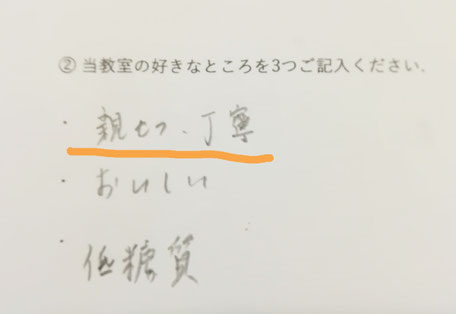 ② 当教室の好きなところを3つご記入ください。
・親切、丁寧
・おいしい
・低糖質